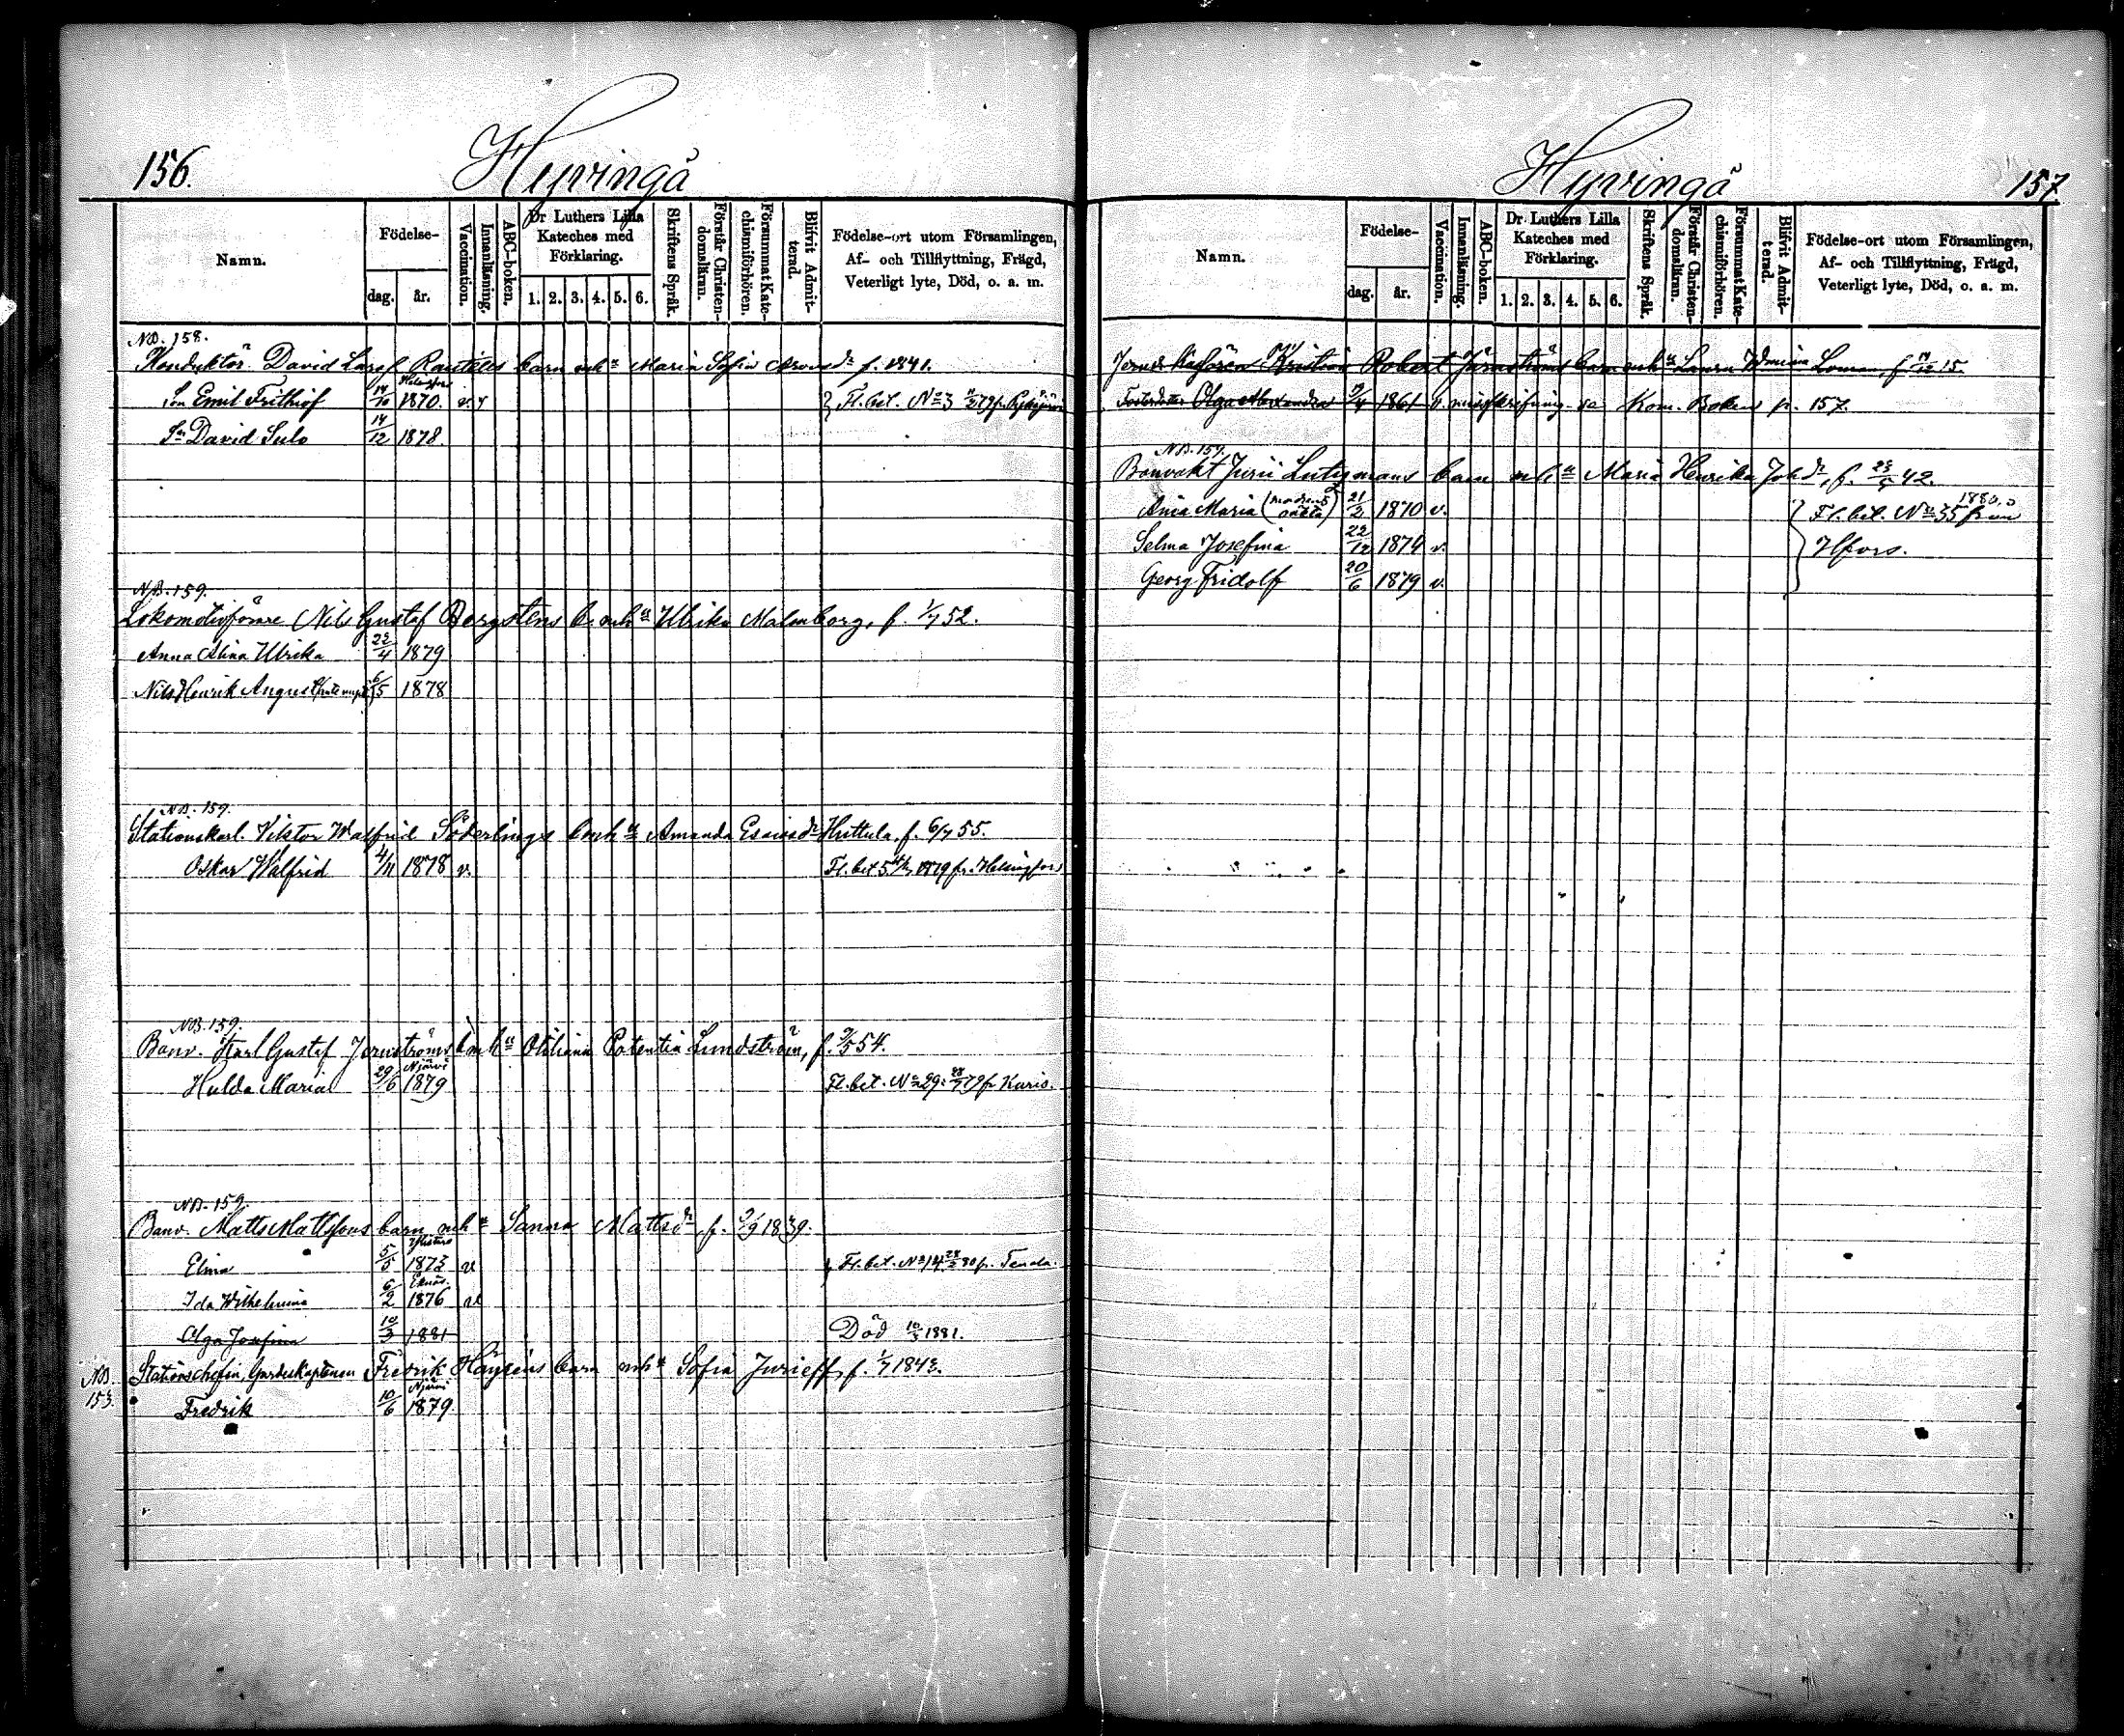 156.
Hyvingå
Namn.
Födelse-
dag.
år.
Vaccination.
Innanläsning.
ABC-boken.
Dr Luthers Lilla
Kateches med
Förklaring.
1. 2. 3. 4. 5. 6.
Skriftens Språk.
Förstår Christen-
domsläran.
Försummat Kate-
chismiförhören.
Blifvit Admit-
terad.
Födelse-ort utom Församlingen,
Af- och Tillflyttning, Frägd,
Veterligt lyte, Död, o. a. m.
NB. 158.
Konduktör David Rautells barn mh Maria Sofia f. 1841.
Son Emil Frithiof 14/10 1870. v.
Fl. bet. No 3
Sn David Sulo 14/12 1878
NB. 159.
Lokomotivförare Nils Gustaf Bergstens b. mh Ulrika Malmberg, f. 1/7 52.
Anna Alina Ulrika 22/4 1879
Nils Henrik August 6/5 1878
NB. 159.
Stationskarl Viktor Walfrid Söderlings b mh Amanda Huttula, f. 6/7 55.
Oskar Walfrid 4/11 1878 v. Fl. bet 5 1879 fr. Helsingfors
NB. 159.
Banv. Karl Gustaf Jernströms b mh Potentia Lundström, f. 54.
Njärvi
Hulda Maria 29/6 1879 Fl. bet. No 29. 79 fr Karis.
NB. 159
Banv. Matts Mattssons barn mh Sanna Mattsdr, f. 2/9 1839.
Elina 5/5 1873 v Fl. bet. No 14 80 fr. Tenala.
Eknäs.
Ida Wilhelmina 6/2 1876 v
Olga Josefina 10/3 1881 Död 10/3 1881.
NB. Stationschefen, Gardeskaptenen Fredrik Häyréns barn mh Sofia Jurieff, f. 1/7 1843.
153.
Njärvi
Fredrik 10/6 1879.
Hyvingå
157
Namn.
Födelse-
dag.
år.
Vaccination.
Innanläsning.
ABC-boken.
Dr Luthers Lilla
Kateches med
Förklaring.
1. 2. 3. 4. 5. 6.
Skriftens Språk.
Förstår Christen-
domsläran.
Försummat Kate-
chismiförhören.
Blifvit Admit-
terad.
Födelse-ort utom Församlingen,
Af- och Tillflyttning, Frägd,
Veterligt lyte, Död, o. a. m.
Robert Järnströms barn mh Laura Loman, f. 15.
Fosterdotter Olga Alexandra 1861 v. misskrifning. se Kom. Boken p. 157.
NB. 159.
Banvakt Jurii Lutigmans barn mh Maria Henrika Johdr, f. 42.
Ania Maria (modrens oäkta) 21/2 1870 v.
1880
Fl. bet. No 35 från
Selma Josefina 22/12 1874 v. Hfors.
Georg Fridolf 20/6 1879 v.